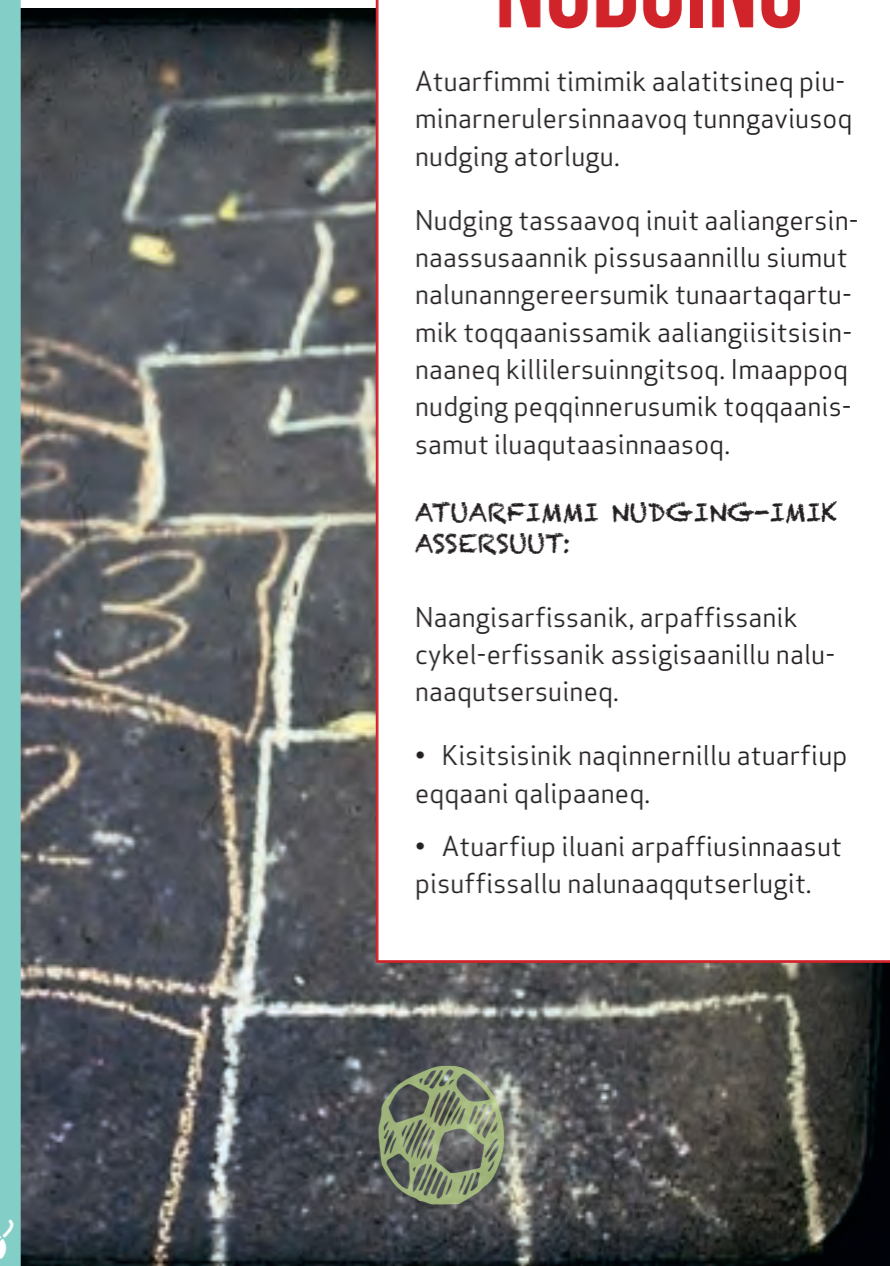 NUDGING
Atuarfimmi timimik aalatitsineq piu-
minarnerulersinnaavoq tunngaviusoq
nudging atorlugu.
Nudging tassaavoq inuit aaliangersin-
naassusaannik pissusaannillu siumut
nalunanngereersumik tunaartaqartu-
mik toqqaanissamik aaliangiisitsisin-
naaneq killilersuinngitsoq. Imaappoq
nudging peqqinnerusumik toqqaanis-
samut iluaqutaasinnaasoq.
ATUARFIMMI NUDGING-IMIK
ASSERSUUT:
Naangisarfissanik, arpaffissanik
cykel-erfissanik assigisaanillu nalu-
naaqutsersuineq.
• Kisitsisinik naqinnernillu atuarfiup
eqqaani qalipaaneq.
• Atuarfiup iluani arpaffiusinnaasut
pisuffissallu nalunaaqqutserlugit.
7
4
3
2
1